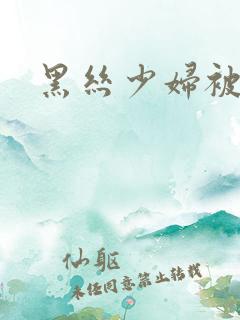 黑絲少婦被
仙軀
未经同意禁止转载